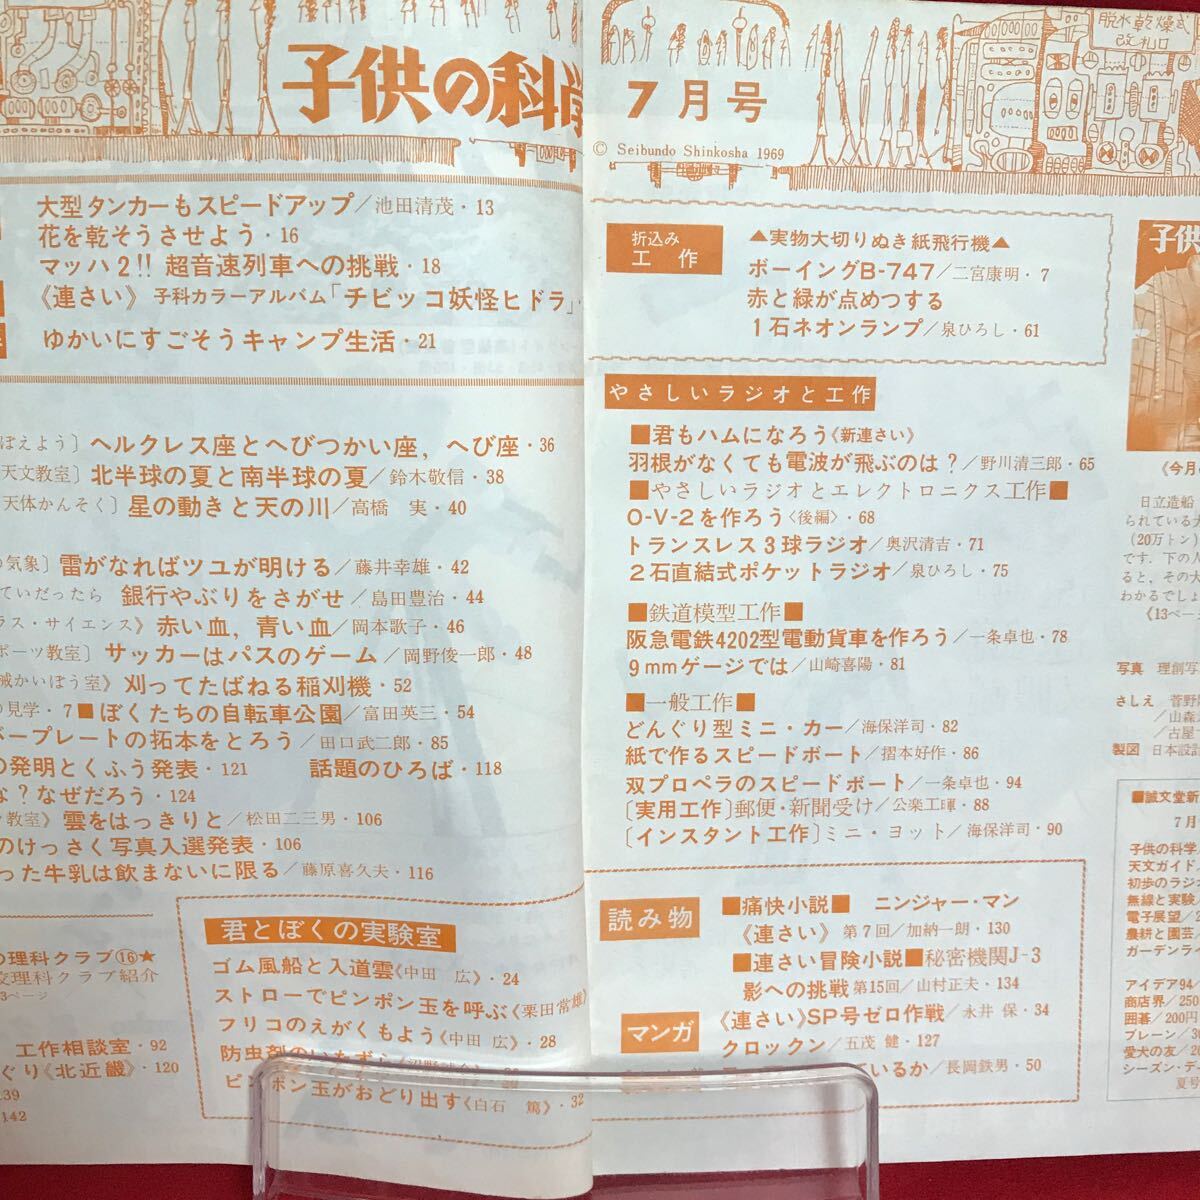 子供の科学
7月号
脱水乾燥式
改札口
© Seibundo Shinkosha 1969
大型タンカーもスピードアップ/池田清茂・13
花を乾そうさせよう・16
マッハ2!! 超音速列車への挑戦・18
《連さい》子科カラーアルバム「チビッコ妖怪ヒドラ」
ゆかいにすごそうキャンプ生活・21
ぼえよう〕ヘルクレス座とへびつかい座,へび座・36
天文教室〕北半球の夏と南半球の夏/鈴木敬信・38
天体かんそく〕星の動きと天の川/高橋 実・40
の気象〕雷がなればツユが明ける/藤井幸雄・42
ていだったら 銀行やぶりをさがせ/島田豊治・44
ラス・サイエンス》赤い血,青い血/岡本歌子・46
ポーツ教室〕サッカーはパスのゲーム/岡野俊一郎・48
械かいぼう室》刈ってたばねる稲刈機・52
の見学・7■ぼくたちの自転車公園/富田英三・54
バープレートの拓本をとろう/田口武二郎・85
の発明とくふう発表・121 話題のひろば・118
な?なぜだろう・124
教室》雲をはっきりと/松田二三男・106
のけっさく写真入選発表・106
った牛乳は飲まないに限る/藤原喜久夫・116
の理科クラブ⑯★
校理科クラブ紹介
3ページ
工作相談室・92
ぐり《北近畿》・120
139
142
君とぼくの実験室
ゴム風船と入道雲《中田 広》・24
ストローでピンポン玉を呼ぶ《栗田常雄》
フリコのえがくもよう《中田 広》・28
防虫剤のいたずら
ピンポン玉がおどり出す《白石 篤》・32
折込み
工作
▲実物大切りぬき紙飛行機▲
ボーイングB-747/二宮康明・7
赤と緑が点めつする
1石ネオンランプ/泉ひろし・61
やさしいラジオと工作
■君もハムになろう《新連さい》
羽根がなくても電波が飛ぶのは?/野川清三郎・65
■やさしいラジオとエレクトロニクス工作■
O-V-2を作ろう〈後編〉・68
トランスレス3球ラジオ/奥沢清吉・71
2石直結式ポケットラジオ/泉ひろし・75
■鉄道模型工作■
阪急電鉄4202型電動貨車を作ろう/一条卓也・78
9mmゲージでは/山崎喜陽・81
■一般工作■
どんぐり型ミニ・カー/海保洋司・82
紙で作るスピードボート/摺本好作・86
双プロペラのスピードボート/一条卓也・94
〔実用工作〕郵便・新聞受け/公楽工暉・88
〔インスタント工作〕ミニ・ヨット/海保洋司・90
読み物
■痛快小説■ ニンジャー・マン
《連さい》第7回/加納一朗・130
■連さい冒険小説■秘密機関J-3
影への挑戦 第15回/山村正夫・134
マンガ
《連さい》SP号ゼロ作戦/永井 保・34
クロックン/五茂 健・127
ているか/長岡鉄男・50
子供
《今月
日立造船
られている大
(20万トン)
です。下の人
ると,その大
わかるでしょ
《13ペー
写真 理創写
さしえ 菅野
/山森
/古屋
製図 日本設計
■誠文堂新
7月
子供の科学
天文ガイド
初歩のラジ
無線と実験
電子展望/2
農耕と園芸
ガーデンラ
アイデア94
商店界/250
囲碁/200円
ブレーン/3
愛犬の友/2
シーズン・デ